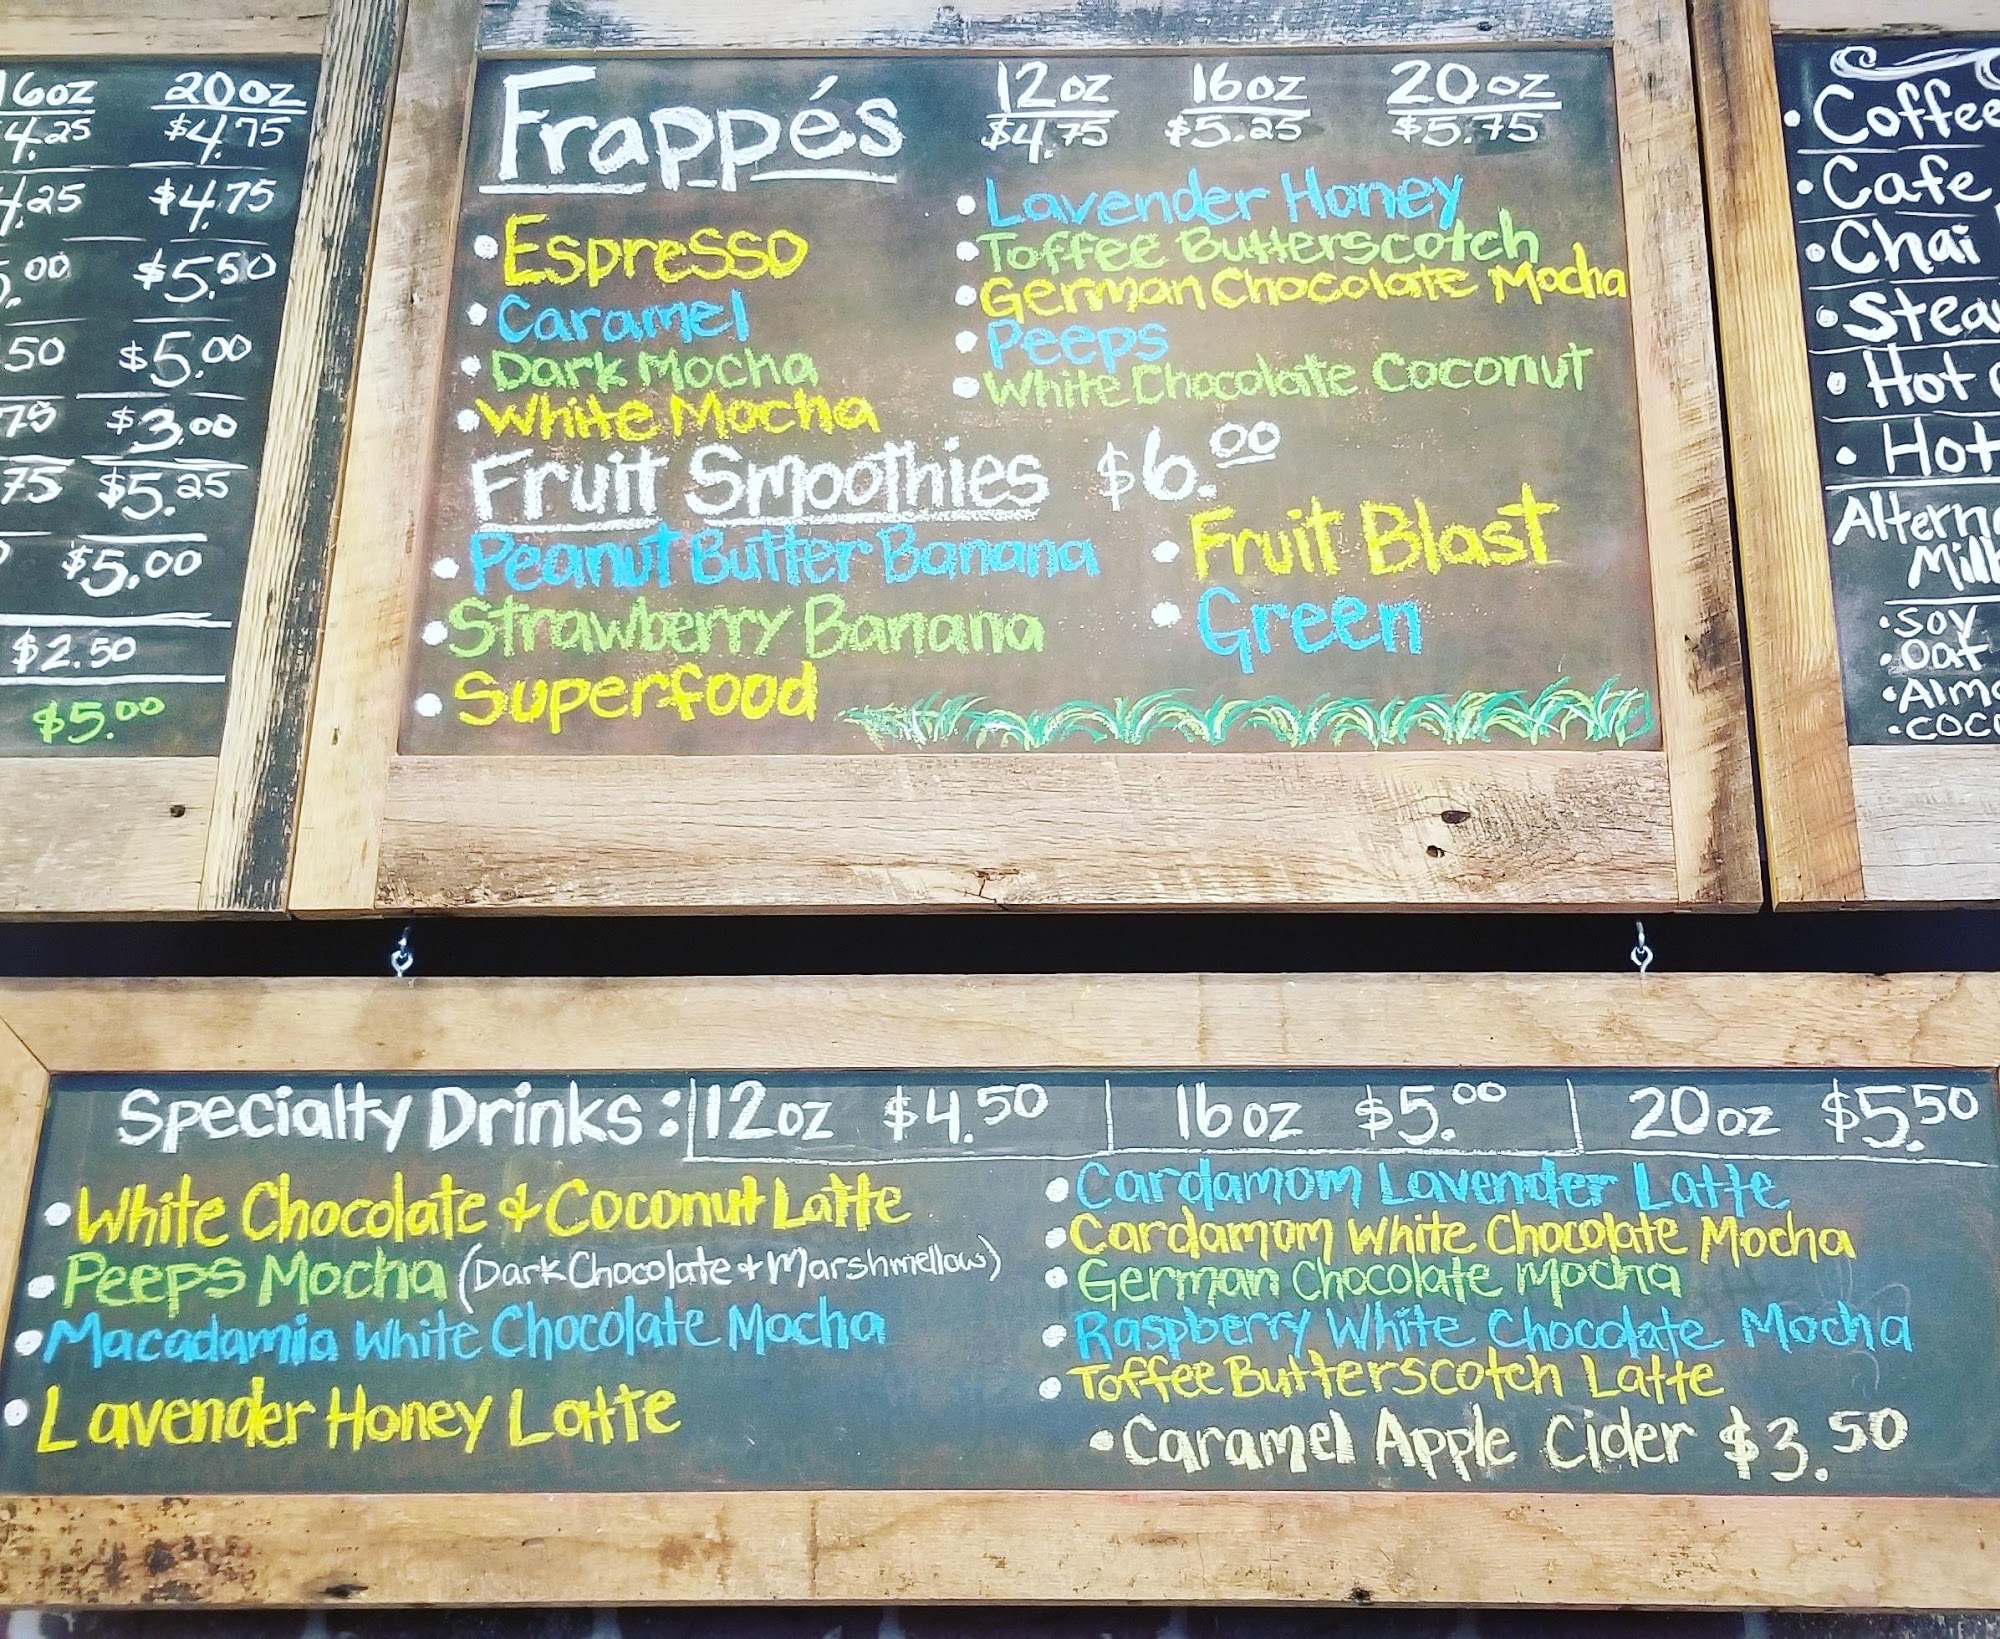 16oz 20oz
4.25 $4.75
4.25 $4.75
.00 $5.50
.50 $5.00
75 $3.00
75 $5.25
$5.00
$2.50
$5.00
Frappés 12oz 16oz 20oz
$4.75 $5.25 $5.75
• Espresso
• Caramel
• Dark Mocha
• White Mocha
• Lavender Honey
• Toffee Butterscotch
• German Chocolate Mocha
• Peeps
• White Chocolate Coconut
Fruit Smoothies $6.00
• Peanut Butter Banana
• Strawberry Banana
• Superfood
• Fruit Blast
• Green
• Coffee
• Cafe
• Chai
• Stea
• Hot
• Hot
Altern
Milk
• Soy
• Oat
• Almo
• Coco
Specialty Drinks: 12oz $4.50 16oz $5.00 20oz $5.50
• White Chocolate & Coconut Latte
• Peeps Mocha (Dark Chocolate + Marshmellow)
• Macadamia White Chocolate Mocha
• Lavender Honey Latte
• Cardamom Lavender Latte
• Cardamom White Chocolate Mocha
• German Chocolate Mocha
• Raspberry White Chocolate Mocha
• Toffee Butterscotch Latte
• Caramel Apple Cider $3.50